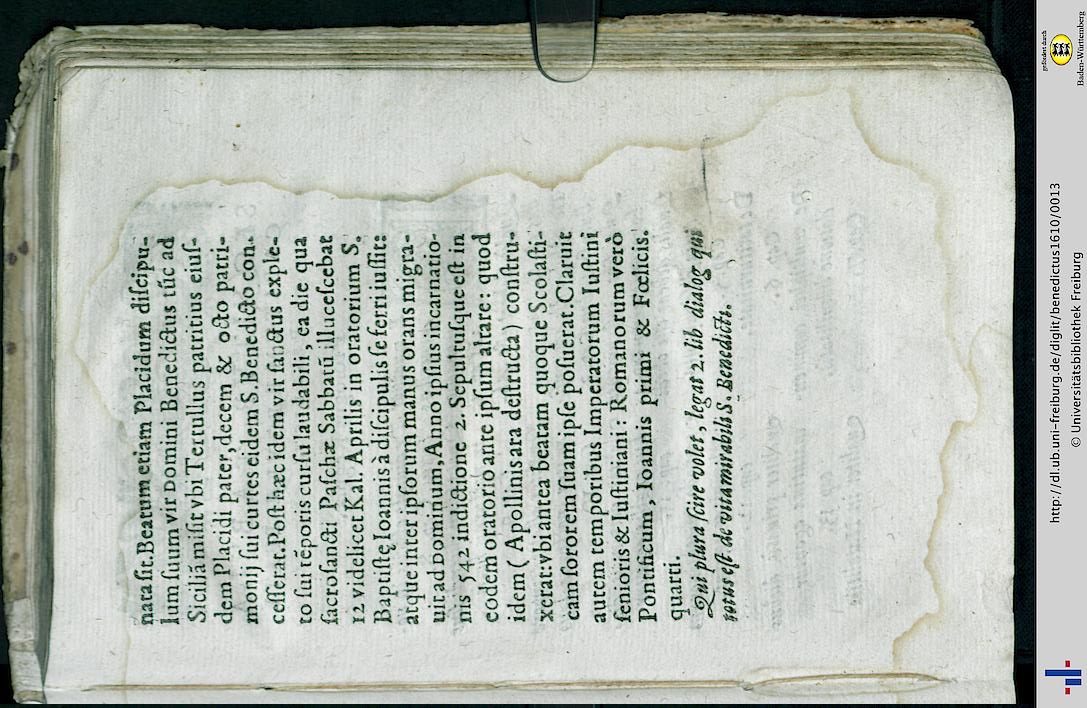 nata ſit. Beatum etiam Placidum diſcipu-
lum ſuum vir Domini Benedictus tũc ad
Siciliã miſit vbi Tertullus patritius eiuſ-
dem Placidi pater, decem & octo patri-
monij ſui curtes eidem S. Benedicto con-
ceſſerat. Poſt hæc idem vir ſanctus exple-
to ſui tẽporis curſu laudabili, ea die qua
ſacroſancti Paſchæ Sabbatũ illuceſcebat
12 videlicet Kal. Aprilis in oratorium S.
Baptiſtę Ioannis à diſcipulis ſe ferri iuſſit:
atque inter ipſorum manus orans migra-
uit ad Dominum, Anno ipſius incarnatio-
nis 542 indictione 2. Sepultuſque eſt in
eodem oratorio ante ipſum altare: quod
idem (Apollinis ara deſtructa) conſtru-
xerat: vbi antea beatam quoque Scolaſti-
cam ſororem ſuam ipſe poſuerat. Claruit
autem temporibus Imperatorum Iuſtini
ſenioris & Iuſtiniani: Romanorum verò
Pontificum, Ioannis primi & Fœlicis
quarti.
Qui plura ſcire volet, legat 2. lib dialog qui
totus eſt de vita mirabili S. Benedicti.
gefördert durch
Baden-Württemberg
http://dl.ub.uni-freiburg.de/diglit/benedictus1610/0013
© Universitätsbibliothek Freiburg